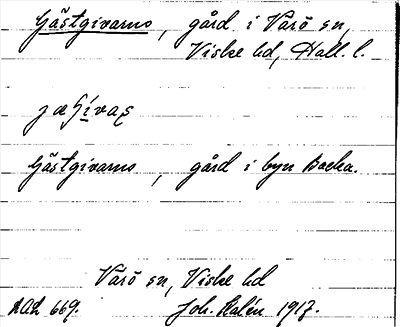 Gästgivarns, gård i Värö sn,
Viske hd, Hall. l.
Gästgivarns, gård i byn Backa.
Värö sn, Viske hd
669. Joh. Kalén 1917.